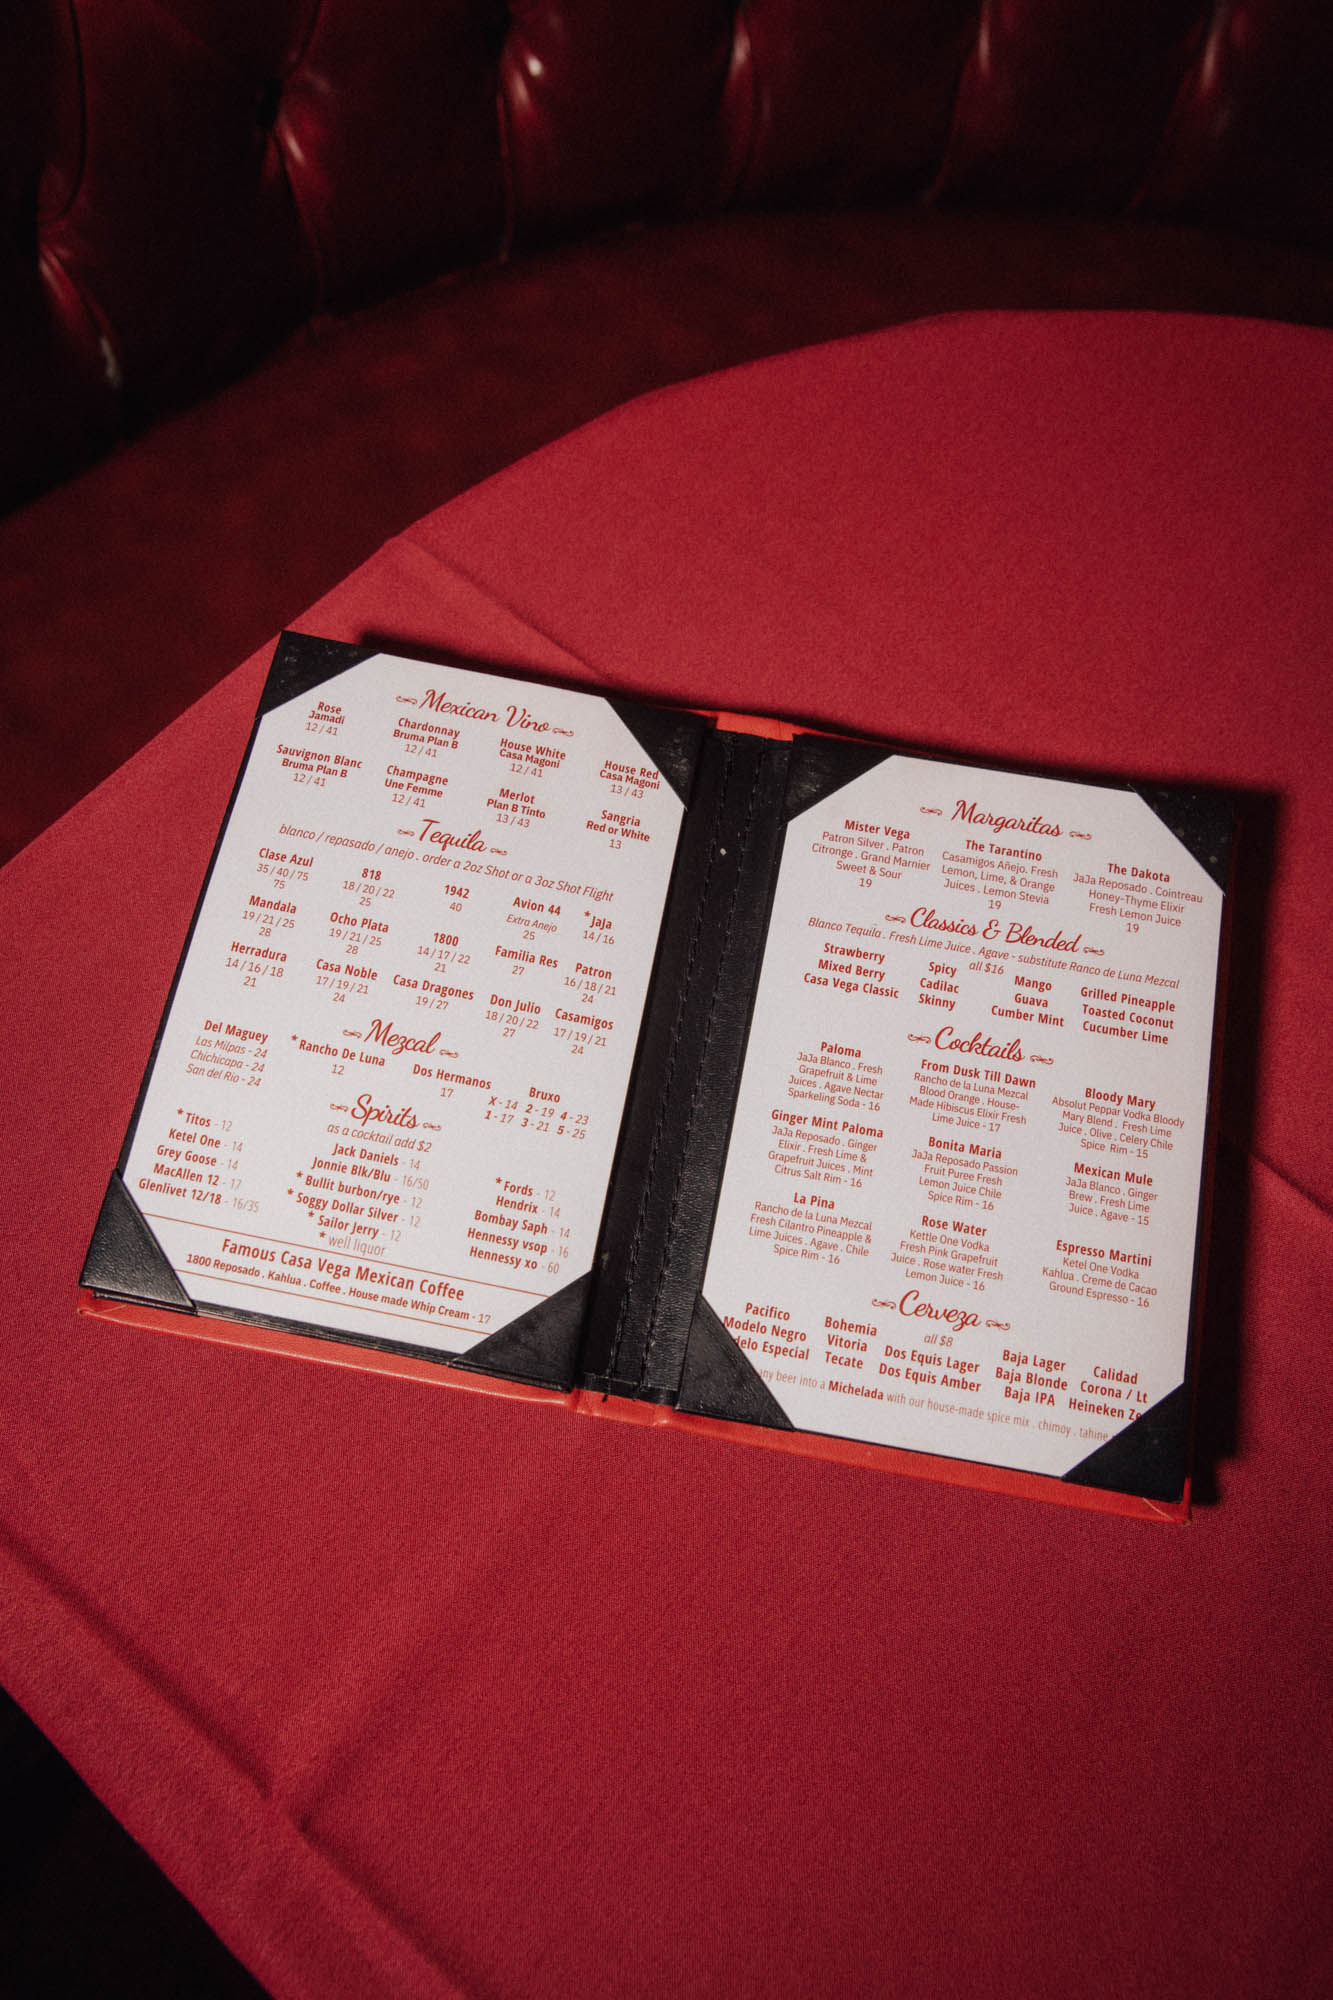 Mexican Vino
Rose
Jamadi
12 / 41
Chardonnay
Bruma Plan B
12 / 41
House White
Casa Magoni
12 / 41
House Red
Casa Magoni
13 / 43
Sauvignon Blanc
Bruma Plan B
12 / 41
Champagne
Une Femme
12 / 41
Merlot
Plan B Tinto
13 / 43
Sangria
Red or White
13
Tequila
blanco / repasado / anejo . order a 2oz Shot or a 3oz Shot Flight
Clase Azul
35 / 40 / 75
75
818
18 / 20 / 22
25
1942
40
Avion 44
Extra Anejo
25
*JaJa
14 / 16
Mandala
19 / 21 / 25
28
Ocho Plata
19 / 21 / 25
28
1800
14 / 17 / 22
21
Familia Res
27
Patron
16 / 18 / 21
24
Herradura
14 / 16 / 18
21
Casa Noble
17 / 19 / 21
24
Casa Dragones
19 / 27
Don Julio
18 / 20 / 22
27
Casamigos
17 / 19 / 21
24
Mezcal
Del Maguey
Las Milpas - 24
Chichicapa - 24
San del Rio - 24
*Rancho De Luna
12
Dos Hermanos
17
Bruxo
X - 14 2 - 19 4 - 23
1 - 17 3 - 21 5 - 25
Spirits
as a cocktail add $2
* Titos - 12
Ketel One - 14
Grey Goose - 14
MacAllen 12 - 17
Glenlivet 12/18 - 16/35
Jack Daniels - 14
Jonnie Blk/Blu - 16/50
* Bullit burbon/rye - 12
* Soggy Dollar Silver - 12
* Sailor Jerry - 12
* well liquor
* Fords - 12
Hendrix - 14
Bombay Saph - 14
Hennessy vsop - 16
Hennessy xo - 60
Famous Casa Vega Mexican Coffee
1800 Reposado . Kahlua . Coffee . House made Whip Cream - 17
Margaritas
Mister Vega
Patron Silver . Patron
Citronge . Grand Marnier
Sweet & Sour
19
The Tarantino
Casamigos Añejo. Fresh
Lemon, Lime, & Orange
Juices . Lemon Stevia
19
The Dakota
JaJa Reposado . Cointreau
Honey-Thyme Elixir
Fresh Lemon Juice
19
Classics & Blended
Blanco Tequila . Fresh Lime Juice . Agave - substitute Ranco de Luna Mezcal
all $16
Strawberry
Mixed Berry
Casa Vega Classic
Spicy
Cadilac
Skinny
Mango
Guava
Cumber Mint
Grilled Pineapple
Toasted Coconut
Cucumber Lime
Cocktails
Paloma
JaJa Blanco . Fresh
Grapefruit & Lime
Juices . Agave Nectar
Sparkeling Soda - 16
From Dusk Till Dawn
Rancho de la Luna Mezcal
Blood Orange . House-
Made Hibiscus Elixir Fresh
Lime Juice - 17
Bloody Mary
Absolut Peppar Vodka Bloody
Mary Blend . Fresh Lime
Juice . Olive . Celery Chile
Spice Rim - 15
Ginger Mint Paloma
JaJa Reposado . Ginger
Elixir . Fresh Lime &
Grapefruit Juices . Mint
Citrus Salt Rim - 16
Bonita Maria
JaJa Reposado Passion
Fruit Puree Fresh
Lemon Juice Chile
Spice Rim - 16
Mexican Mule
JaJa Blanco . Ginger
Brew . Fresh Lime
Juice . Agave - 15
La Pina
Rancho de la Luna Mezcal
Fresh Cilantro Pineapple &
Lime Juices . Agave . Chile
Spice Rim - 16
Rose Water
Kettle One Vodka
Fresh Pink Grapefruit
Juice . Rose water Fresh
Lemon Juice - 16
Espresso Martini
Ketel One Vodka
Kahlua . Creme de Cacao
Ground Espresso - 16
Cerveza
all $8
Pacifico
Modelo Negro
delo Especial
Bohemia
Vitoria
Tecate
Dos Equis Lager
Dos Equis Amber
Baja Lager
Baja Blonde
Baja IPA
Calidad
Corona / Lt
Heineken Ze
any beer into a Michelada with our house-made spice mix . chimoy . tahine